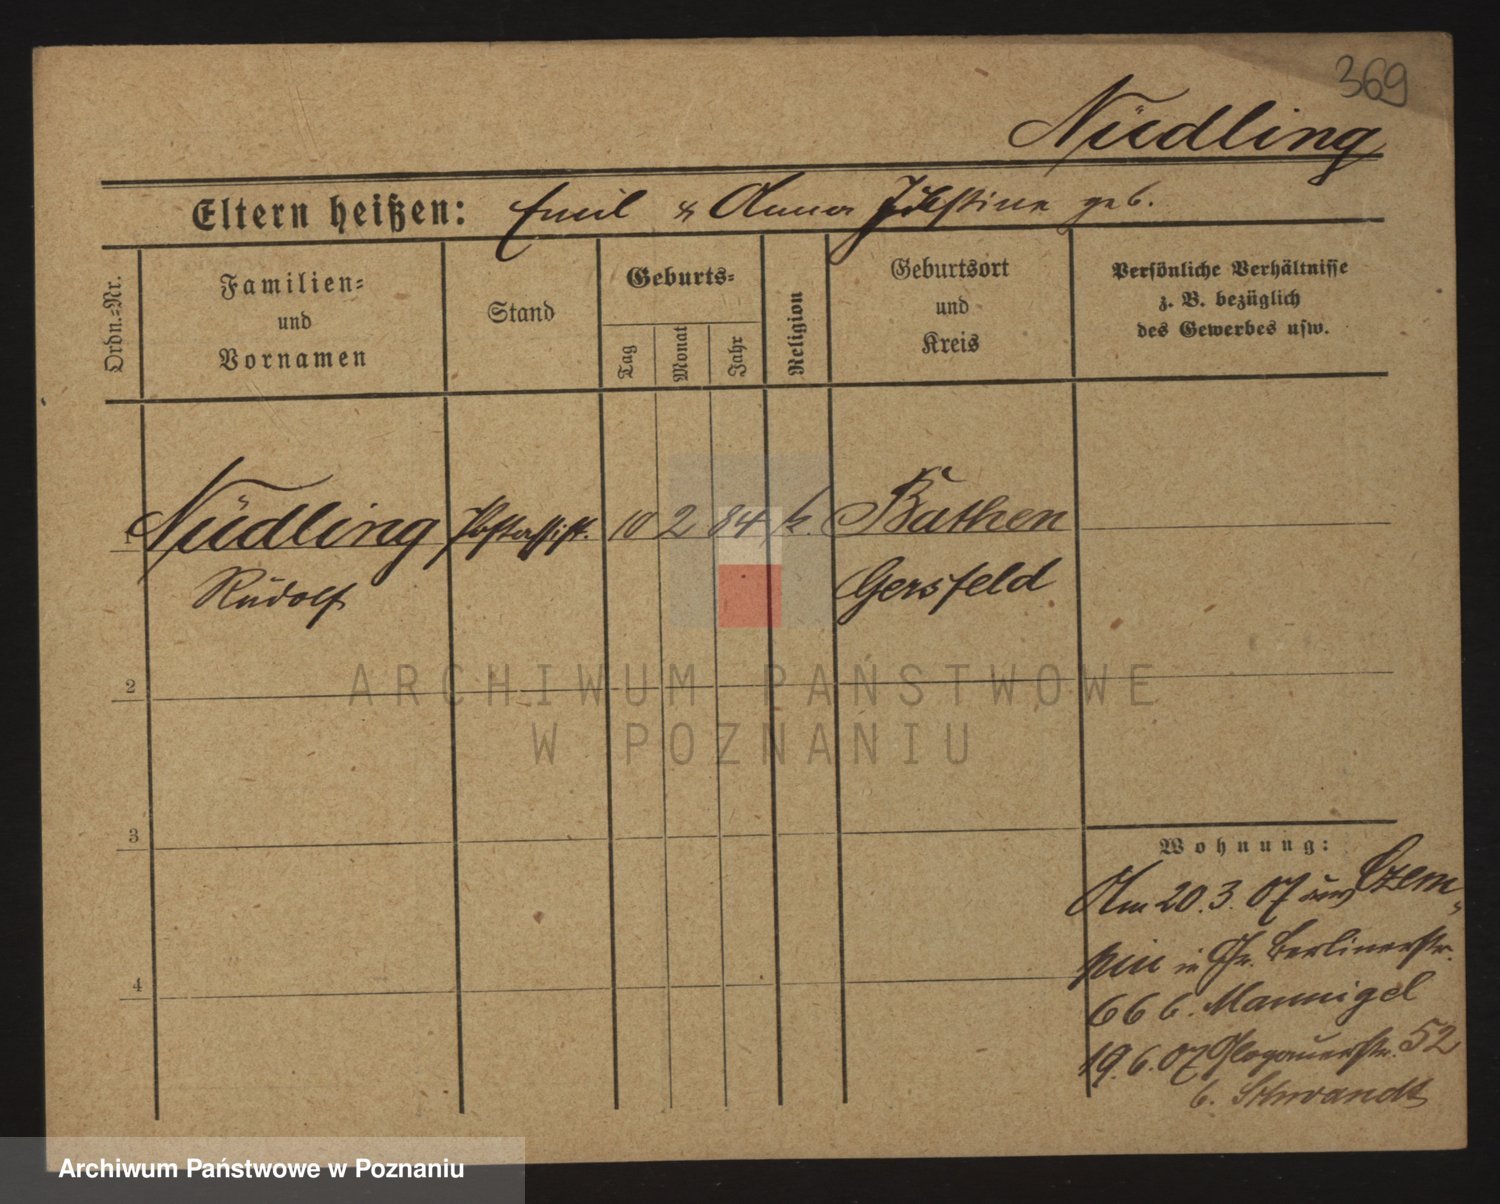 369
Nüdling
Eltern heißen: Emil & Anna Justine geb.
Ordn.-Nr.
Familien-
und
Vornamen
Stand
Geburts-
Tag
Monat
Jahr
Religion
Geburtsort
und
Kreis
Persönliche Verhältnisse
z. B. bezüglich
des Gewerbes usw.
1 Nüdling Postassist. 10 2 84 k. Bathen
Rudolf Gersfeld
2
ARCHIWUM PAŃSTWOWE
W POZNANIU
3
Wohnung:
Am 20.3.07 aus Czem-
pin in Gr. Berlinerstr.
66 b. Mannigel
4
19.6.07 Glogauerstr. 52
b. Schwandt
Archiwum Państwowe w Poznaniu